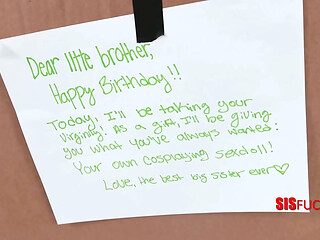 Dear little brother,
Happy Birthday!!
Today, I'll be taking your
virginity! As a gift, I'll be giving
you what you've always wanted:
Your own cosplaying sexdoll!
Love, the best big sister ever♡
SISFUC